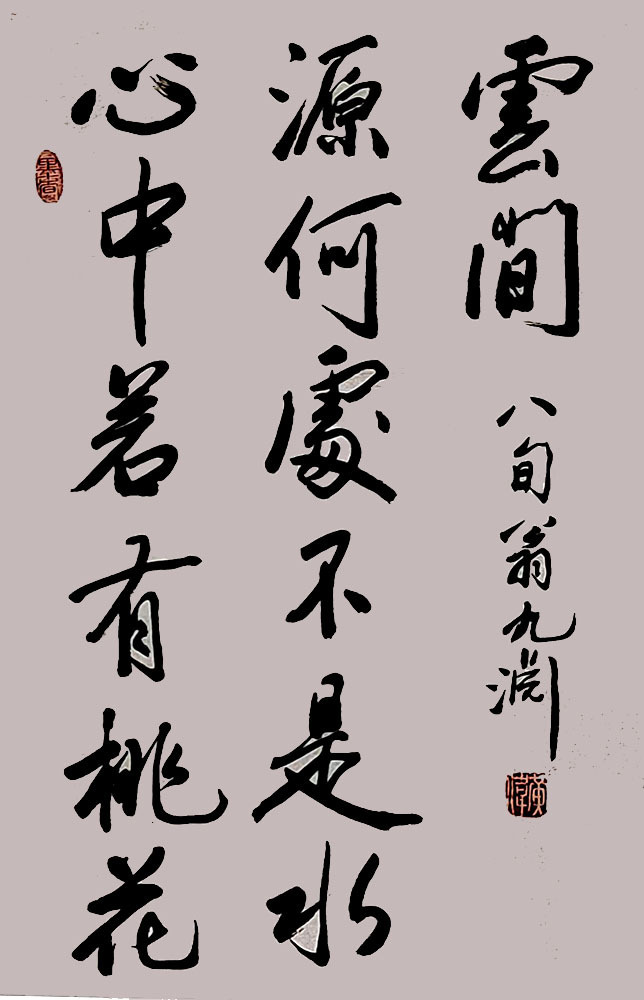 心中若有桃花
源何處不是水
雲間
八旬翁九淵